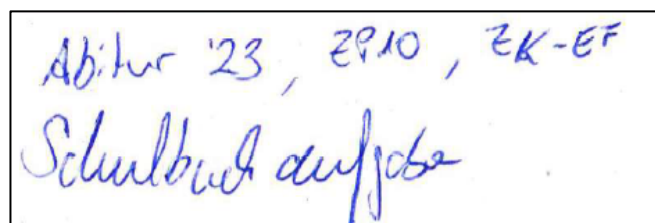 Abitur '23, ZP10, ZK-EF
Schulbuchaufgabe